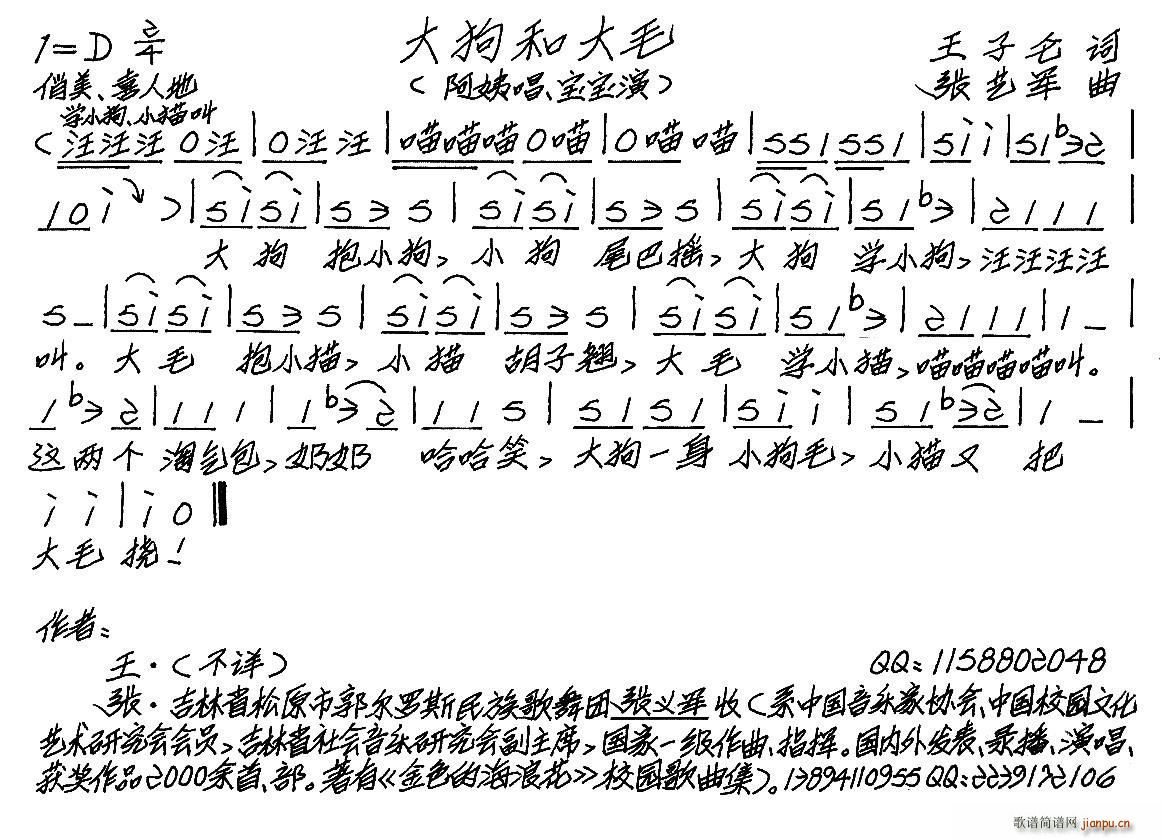 1=D 2/4 大狗和大毛 王子仑 词
俏美、喜人地 (阿姨唱、宝宝演) 张艺军 曲
学小狗、小猫叫
(汪汪汪 0汪|0汪汪|喵喵喵0喵|0喵喵|551551|5i i|51b32|
10i ↘)|5i5i|535|5i5i|535|5i5i|51b3|2111|
大狗 抱小狗, 小狗 尾巴摇, 大狗 学小狗, 汪汪汪汪
5–|5i5i|535|5i5i|535|5i5i|51b3|2111|1–|
叫。大毛 抱小猫, 小猫 胡子翘, 大毛 学小猫, 喵喵喵喵叫。
1b32|111|1b32|115|5151|5i i|51b32|1–|
这两个 淘气包, 奶奶 哈哈笑, 大狗一身 小狗毛, 小猫又 把
i i|i 0‖
大毛 挠!
作者:
王·(不详) QQ:1158802048
张·吉林省松原市郭尔罗斯民族歌舞团张义军收(系中国音乐家协会、中国校园文化
艺术研究会会员,吉林省社会音乐研究会副主席,国家一级作曲、指挥。国内外发表、录播、演唱、
获奖作品2000余首、部。著有《金色的海浪花》校园歌曲集)。13894110955 QQ:2239172106
歌谱简谱网 jianpu.cn